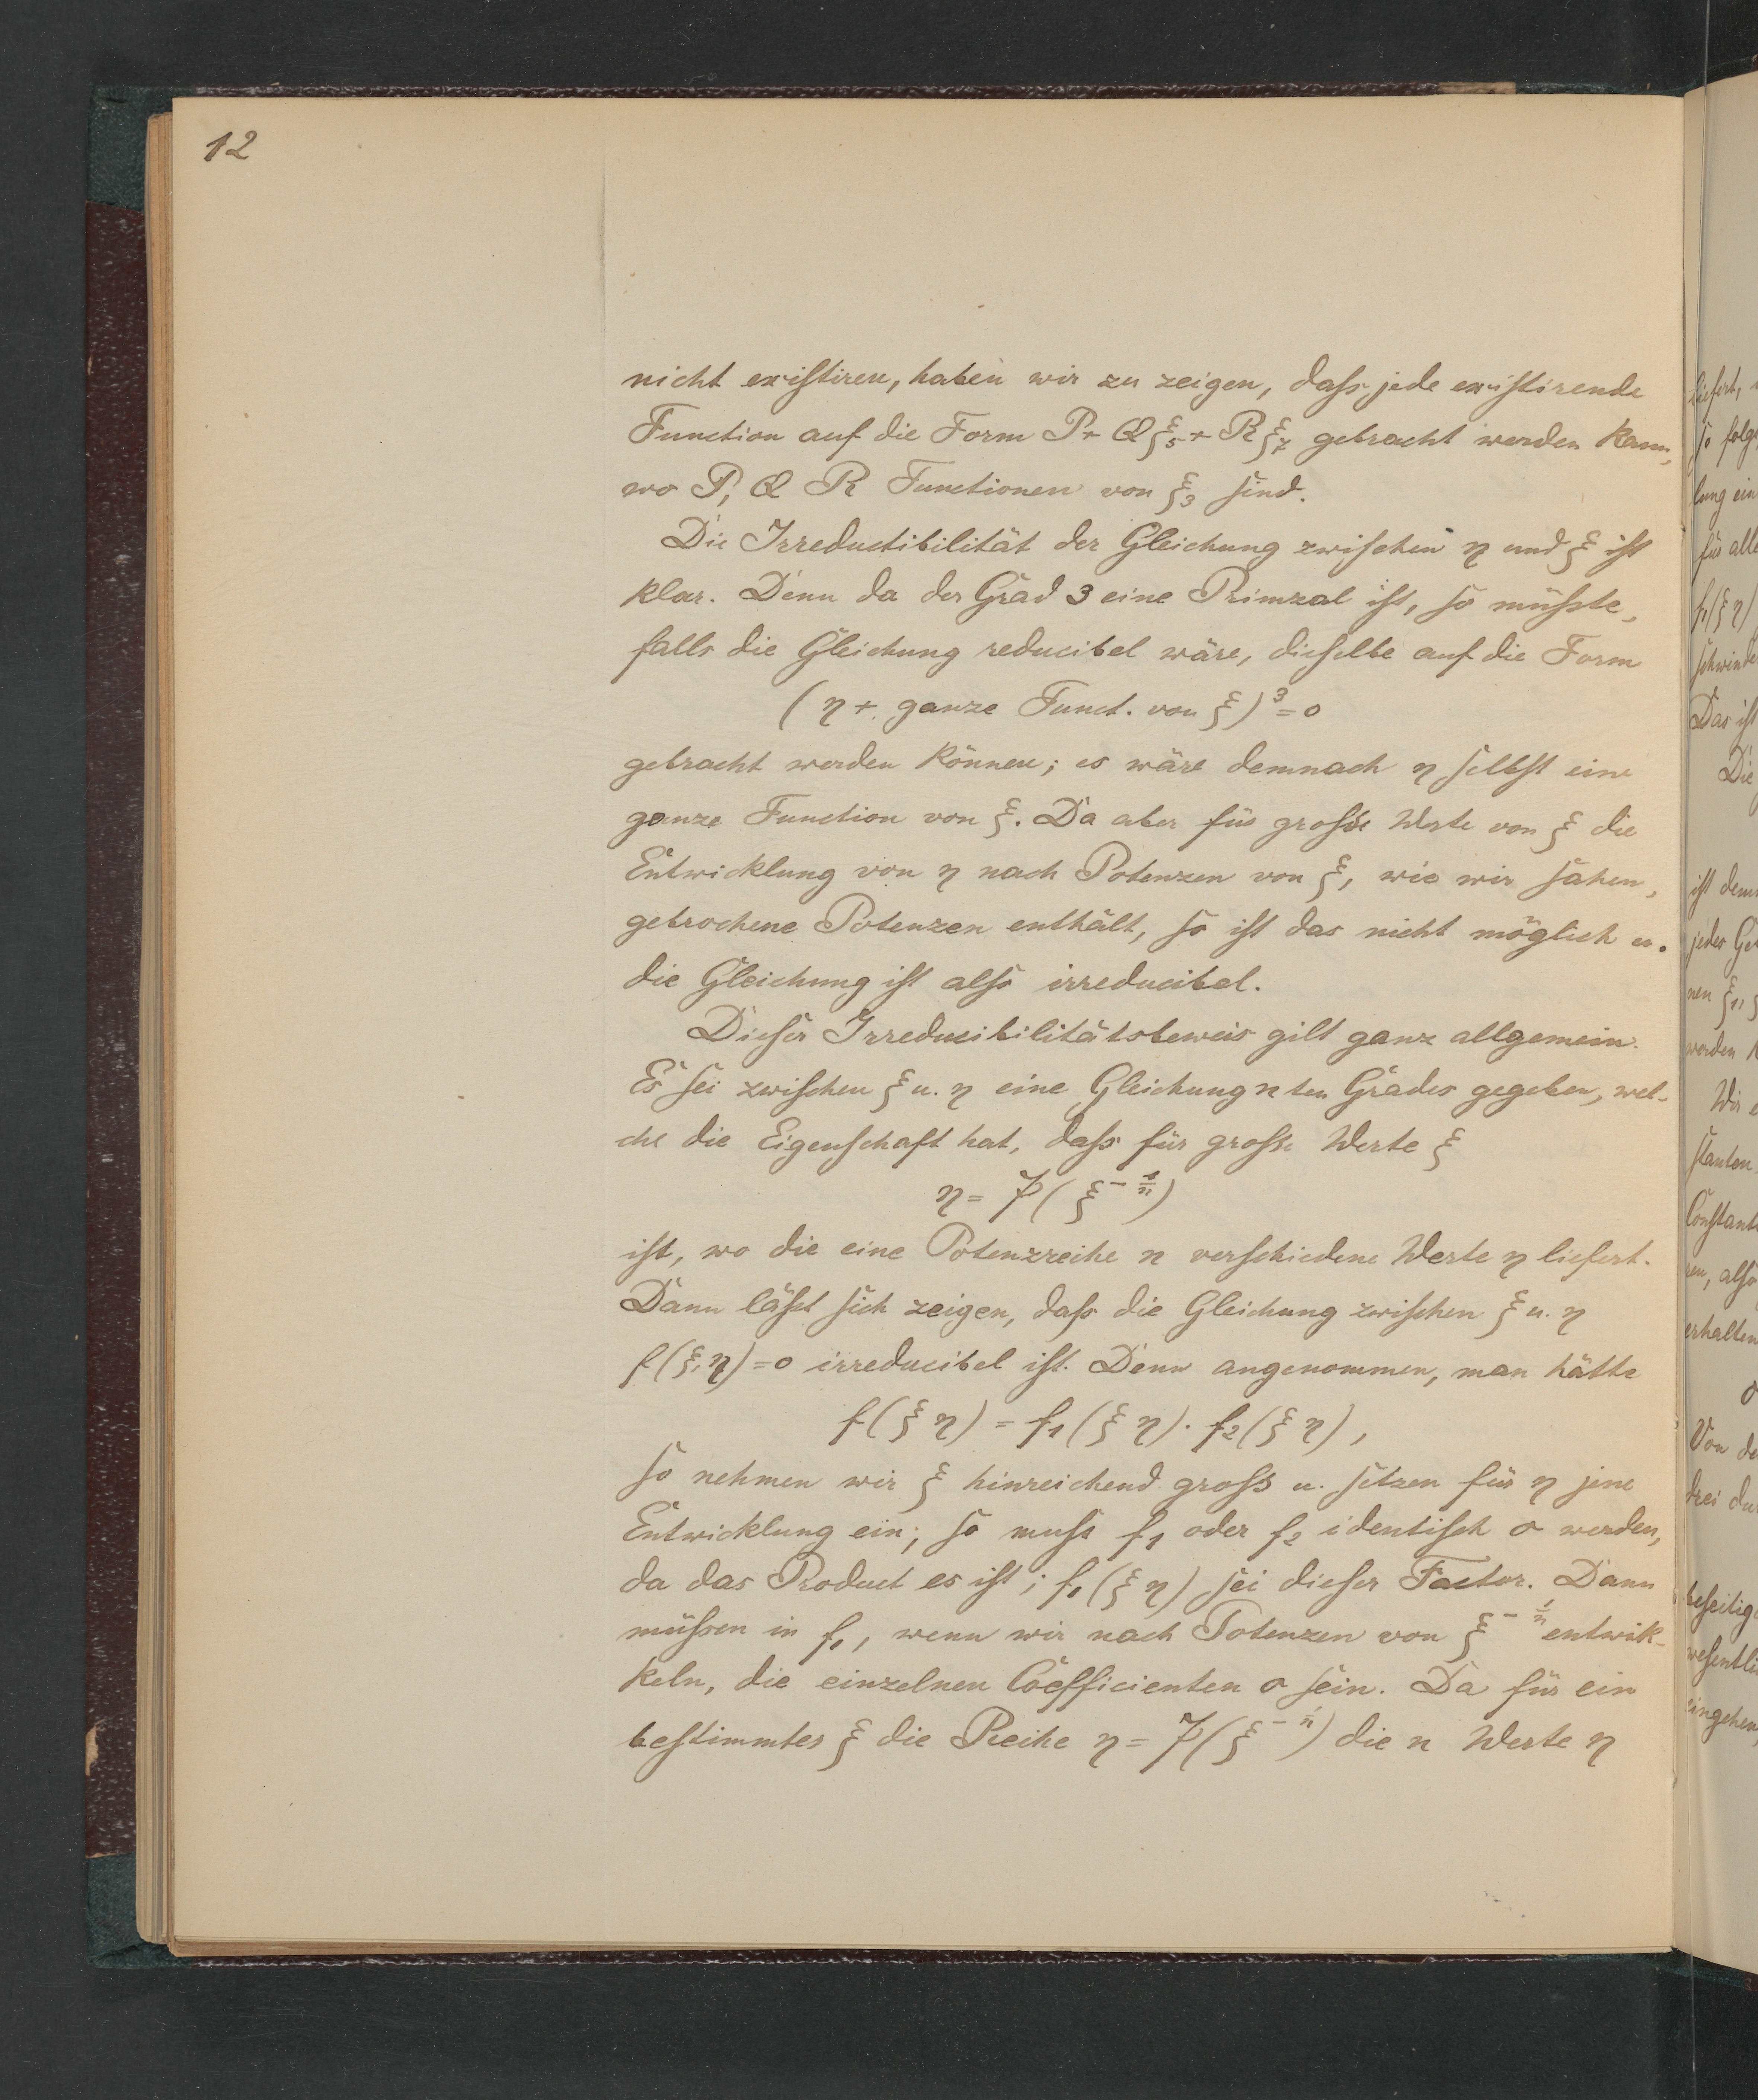 12
nicht existiren, haben wir zu zeigen, dass jede existirende
Function auf die Form P + Qξ₅ + Rξ₇ gebracht werden kann,
wo P, Q R Functionen von ξ₃ sind.
Die Irreductibilität der Gleichung zwischen η und ξ ist
klar. Denn da der Grad 3 eine Primzal ist, so müsste,
falls die Gleichung reducibel wäre, dieselbe auf die Form
(η + ganze Funct. von ξ)³ = 0
gebracht werden können; es wäre demnach η selbst eine
ganze Function von ξ. Da aber für grosse Werte von ξ die
Entwicklung von η nach Potenzen von ξ, wie wir sahen,
gebrochene Potenzen enthält, so ist das nicht möglich u.
die Gleichung ist also irreducibel.
Dieser Irreducibilitätsbeweis gilt ganz allgemein.
Es sei zwischen ξ u. η eine Gleichung n ten Grades gegeben, wel-
che die Eigenschaft hat, dass für grosse Werte ξ
η = P(ξ^{-1/n})
ist, wo die eine Potenzreihe n verschiedene Werte η liefert.
Dann lässt sich zeigen, dass die Gleichung zwischen ξ u. η
f(ξ, η) = 0 irreducibel ist. Denn angenommen, man hätte
f(ξ η) = f₁(ξ η) · f₂(ξ η),
so nehmen wir ξ hinreichend gross u. setzen für η jene
Entwicklung ein; so muss f₁ oder f₂ identisch 0 werden,
da das Product es ist; f₁(ξ η) sei dieser Factor. Dann
müssen in f₁, wenn wir nach Potenzen von ξ^{-1/n} entwik-
keln, die einzelnen Coefficienten 0 sein. Da für ein
bestimmtes ξ die Reihe η = P(ξ^{-1/n}) die n Werte η